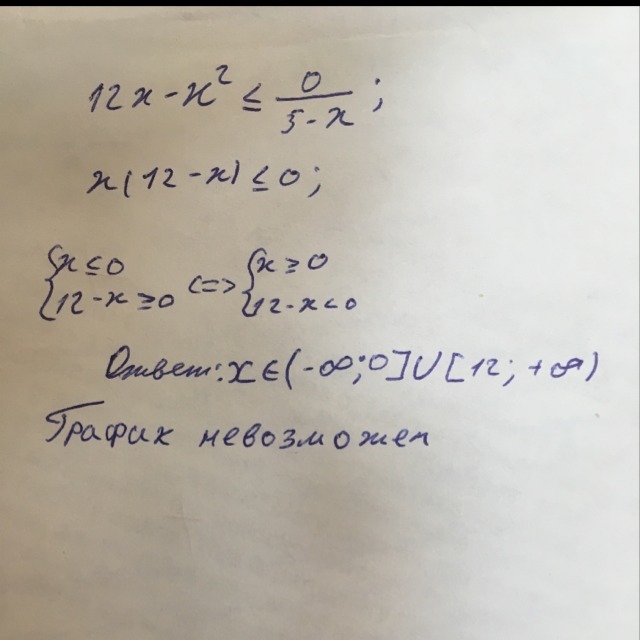 12x-x² ≤ 0/(5-x);
x(12-x) ≤ 0;
{x≤0 {x≥0
{12-x≥0 <=> {12-x<0
Ответ: x∈(-∞;0]∪[12;+∞)
График невозможен